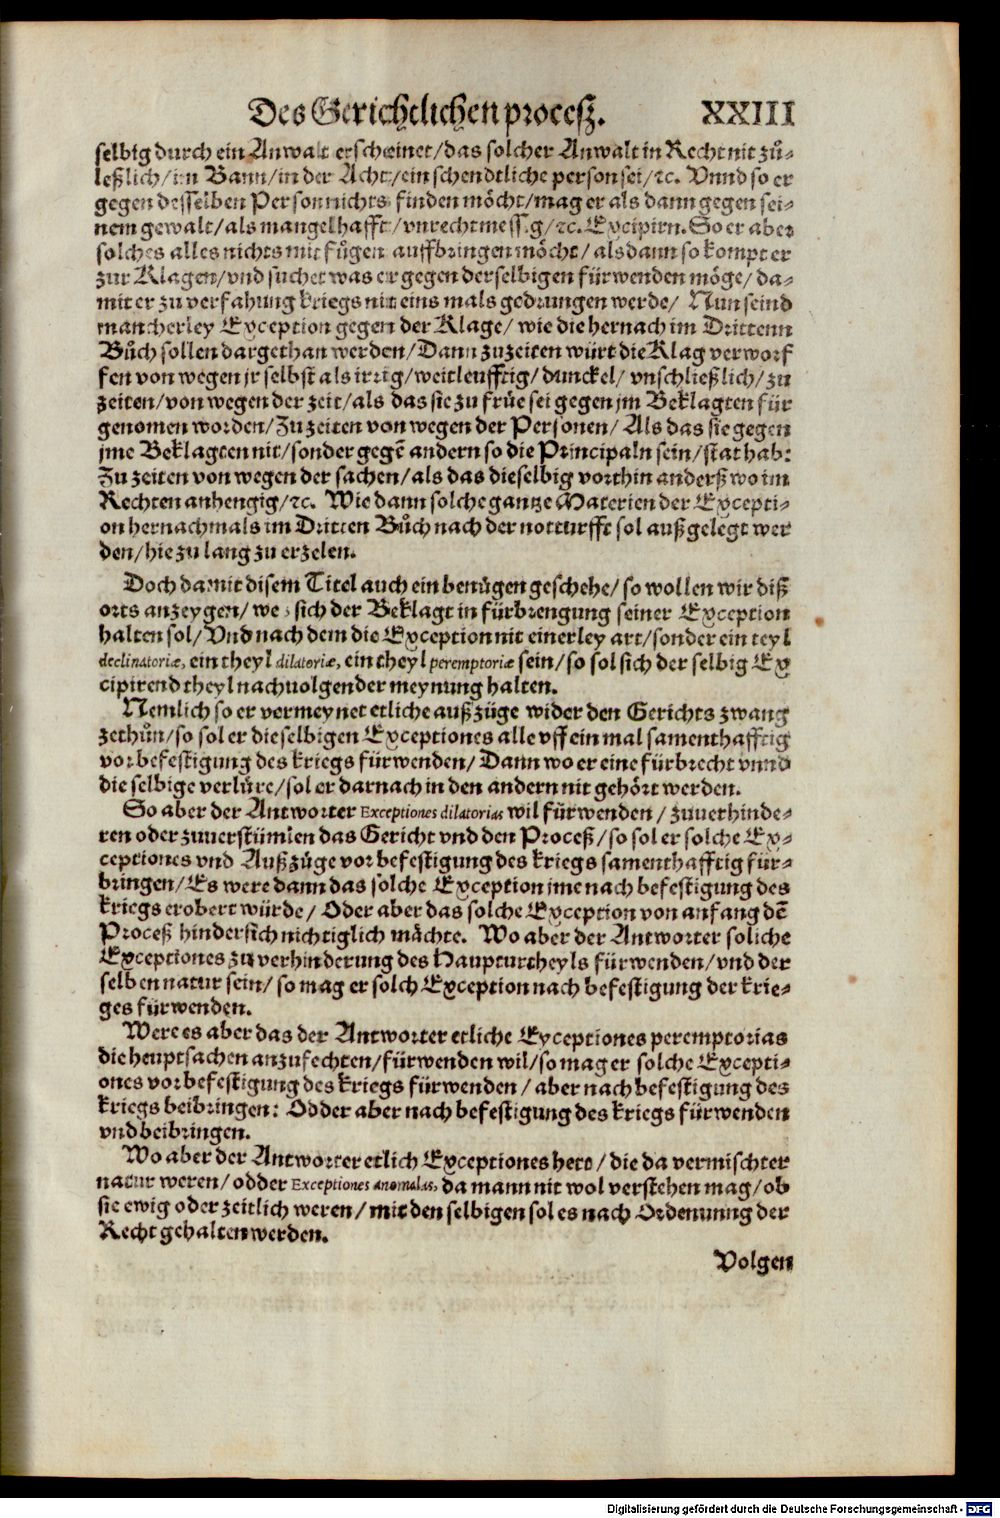 Des Gerichtlichen procesz. XXIII
selbig durch ein Anwalt erscheinet/das solcher Anwalt in Recht nit zů-
leßlich/im Bann/in der Acht/ein schendtliche person sei/ꝛc. Vnnd so er
gegen desselben Person nichts finden möcht/mag er als dann gegen sei-
nem gewalt/als mangelhafft/vnrechtmessig/ꝛc. Excipirn. So er aber
solches alles nichts mit fůgen auffbringen möcht/als dann so kompt er
zur Klagen/vnd suchet was er gegen derselbigen fürwenden möge/da-
mit er zu verfahung kriegs nit eins mals gedrungen werde/ Nun seind
mancherley Exception gegen der Klage/ wie die hernach im Drittenn
Bůch sollen dargethan werden/Dann zu zeiten würt die Klag verworf
fen von wegen jr selbst als irrig/weitleufftig/dunckel/vnschließlich/zu
zeiten/von wegen der zeit/als das sie zu frůe sei gegen jm Beklagten für
genomen worden/Zu zeiten von wegen der Personen/Als das sie gegen
jme Beklagten nit/sonder gegē andern so die Principaln sein/stat hab:
Zu zeiten von wegen der sachen/als das dieselbig vorthin anderßwo im
Rechten anhengig/ꝛc. Wie dann solche gantze Materien der Excepti-
on hernachmals im Dritten Bůch nach der notturfft sol außgelegt wer
den/hie zu lang zu erzelen.
Doch damit disem Titel auch ein benůgen geschehe/so wollen wir diß
orts anzeygen/we sich der Beklagt in fürbrengung seiner Exception
halten sol/Vnd nach dem die Exception nit einerley art/sonder ein teyl
declinatoriæ, ein theyl dilatoriæ, ein theyl peremptoriæ sein/so sol sich der selbig Ex
cipirend theyl nachuolgender meynung halten.
Nemlich so er vermeynet etliche außzüge wider den Gerichts zwang
zethůn/so sol er dieselbigen Exceptiones alle vff ein mal samenthafftig
vor befestigung des kriegs fürwenden/Dann wo er eine fürbrecht vnnd
die selbige verlüre/sol er darnach in den andern nit gehört werden.
So aber der Antworter Exceptiones dilatorias wil fürwenden/zuuerhinde-
ren oder zuuerstümlen das Gericht vnd den Proceß/so sol er solche Ex-
ceptiones vnd Außzüge vor befestigung des kriegs samenthafftig für-
bringen/Es were dann das solche Exception jme nach befestigung des
kriegs erobert würde/Oder aber das solche Exception von anfang dē
Proceß hindersich nichtiglich mächte. Wo aber der Antworter soliche
Exceptiones zu verhinderung des Haupturtheyls fürwenden/vnd der
selben natur sein/so mag er solch Exception nach befestigung der krie-
ges fürwenden.
Were es aber das der Antworter etliche Exceptiones peremptorias
die heuptsachen anzufechten/fürwenden wil/so mag er solche Excepti-
ones vor befestigung des kriegs fürwenden/aber nach befestigung des
kriegs beibringen: Odder aber nach befestigung des kriegs fürwenden
vnd beibringen.
Wo aber der Antworter etlich Exceptiones hete/die da vermischter
natur weren/odder Exceptiones anomalas, da mann nit wol verstehen mag/ob
sie ewig oder zeitlich weren/mit den selbigen sol es nach Ordenung der
Recht gehalten werden.
Volgen
Digitalisierung gefördert durch die Deutsche Forschungsgemeinschaft - DFG